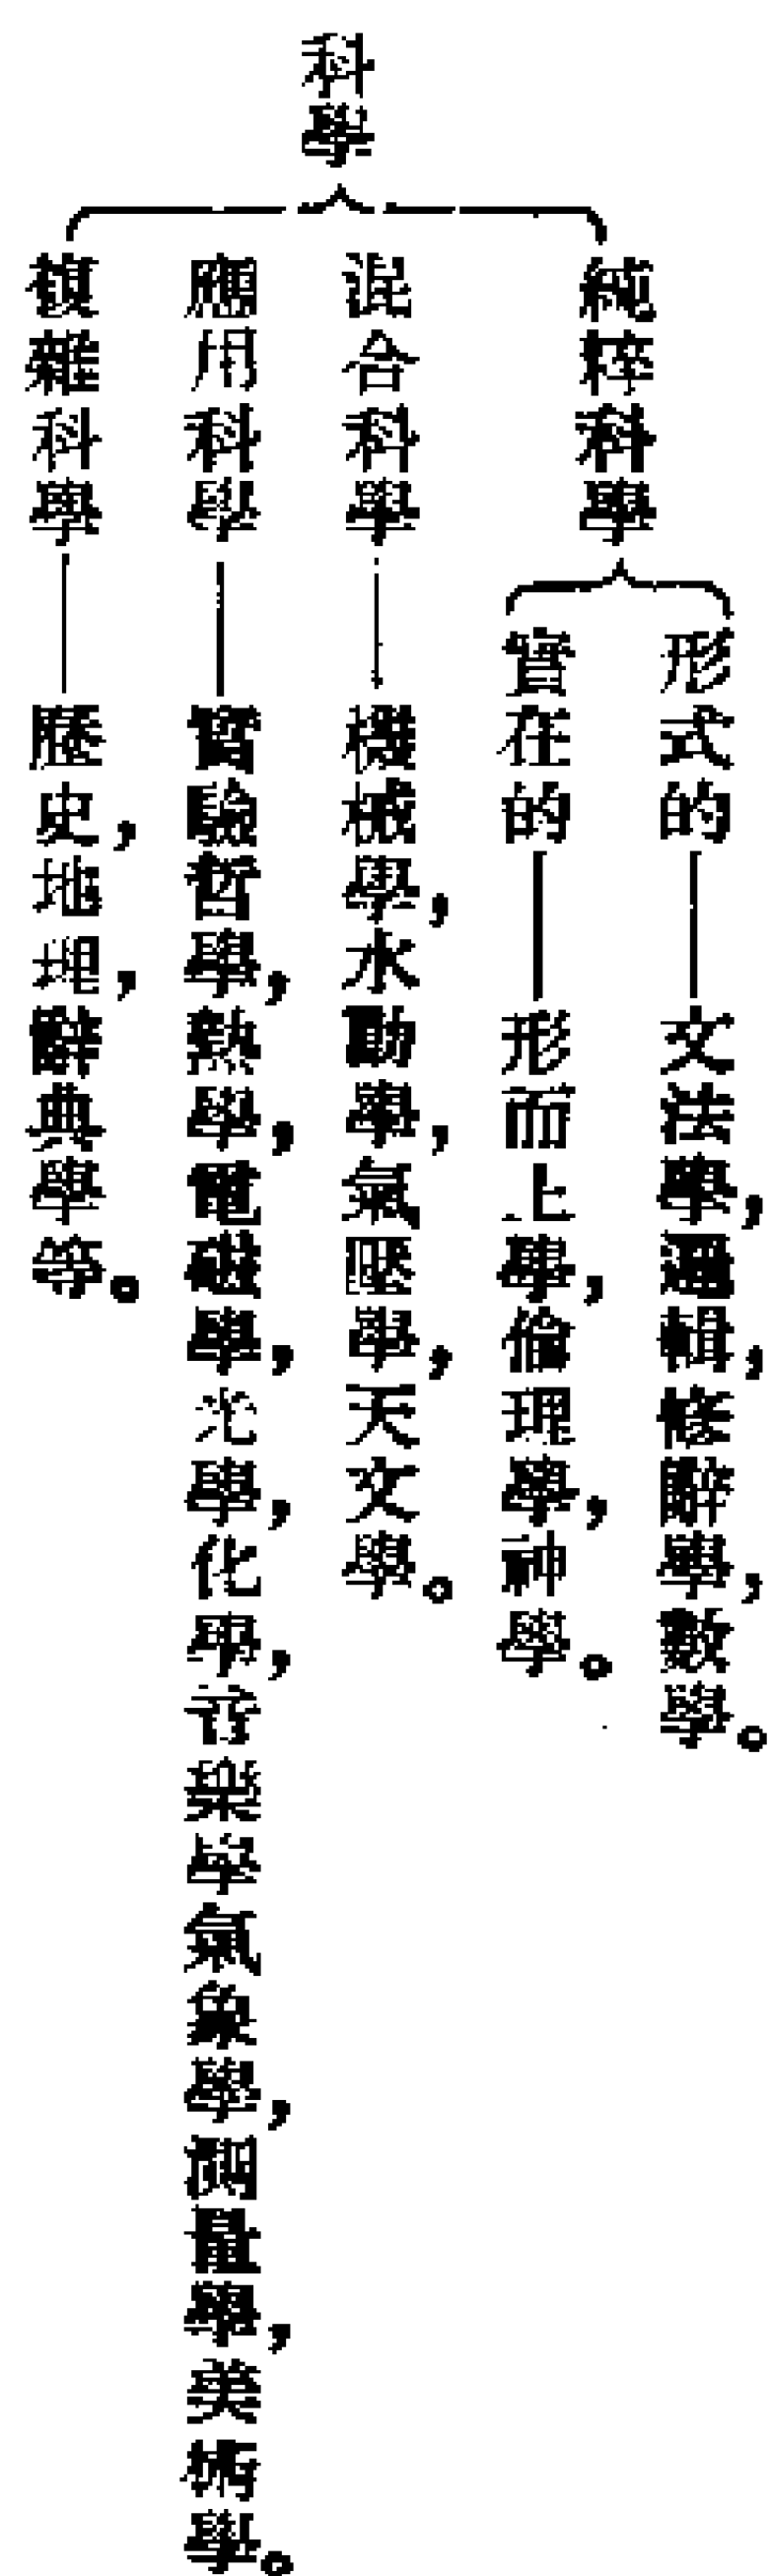 科學
純粹科學
形式的——文法學，邏輯，修辭學，數學。
實在的——形而上學，倫理學，神學。
混合科學——機械學，水動學，氣壓學，天文學。
應用科學——實驗哲學，熱學，電磁學，光學，化學，音樂學氣象學，測量學，美術學。
複雜科學——歷史，地理，辭典學等。